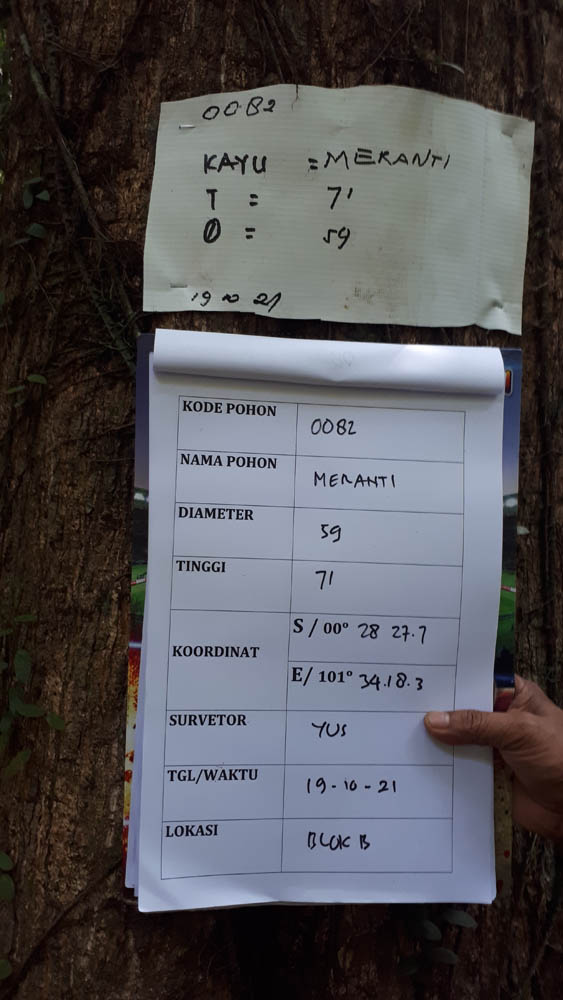 0082
KAYU = MERANTI
T = 71
Ø = 59
19 10 21
KODE POHON 0082
NAMA POHON MERANTI
DIAMETER 59
TINGGI 71
KOORDINAT S / 00° 28 27.7
E/ 101° 34.18.3
SURVETOR YUS
TGL/WAKTU 19-10-21
LOKASI BLOK B